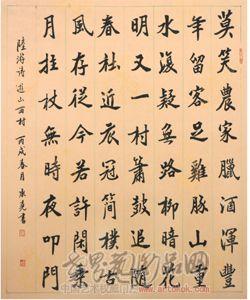 莫笑農家臘酒渾豐
年留客足雞豚山重
水複疑無路柳暗花
明又一村簫鼓追隨
春社近衣冠簡樸古
風存從今若許閑乘
月拄杖無時夜叩門
陸游詩 遊山西村 丙戌春月 書